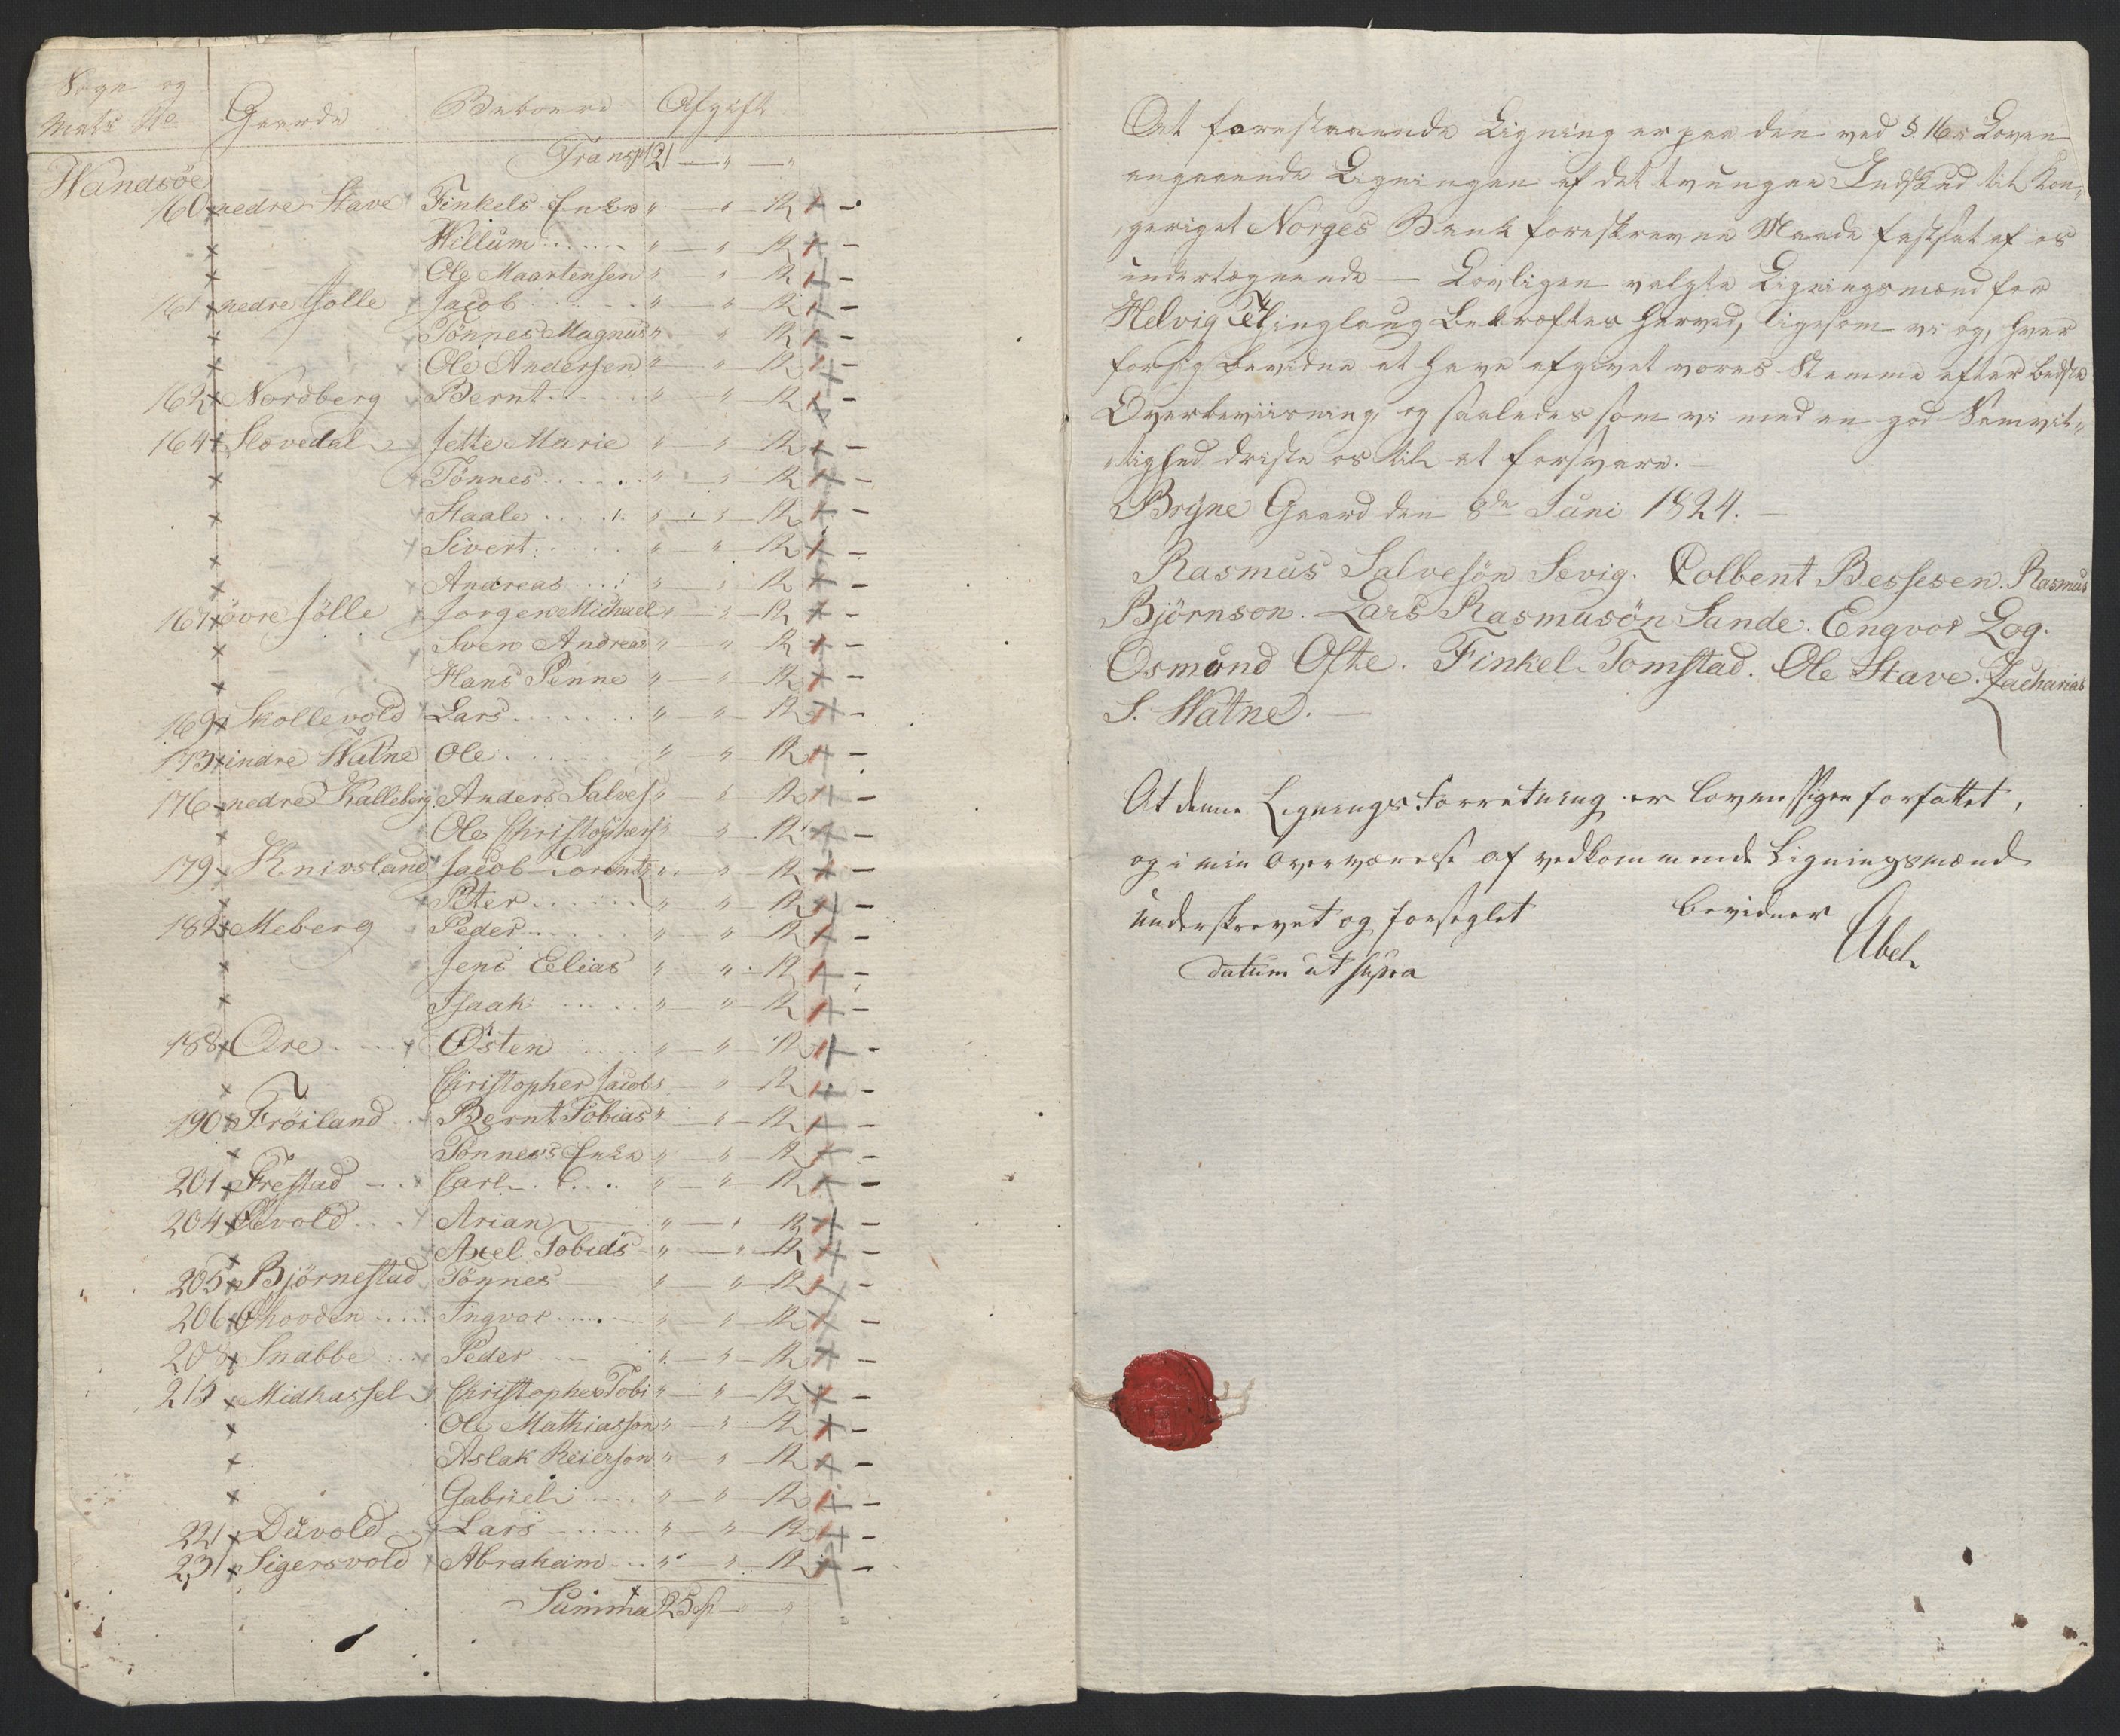 Sogn og
Mats No Gaarde Beboere Afgift
Transpt 21 — " — "
Wandsøe
160 nedre Stave Finkels Enke " — " 12 1 —
Willum ...... " — " 12 1 —
Ole Maartensen " — " 12 1 —
161 nedre Jölle Jacob ...... " — " 12 1 —
Tönnes Magnus " — " 12 1 —
Ole Andersen " — " 12 1 —
162 Nordberg Bernt ...... " — " 12 1 —
164 Slovedal Jette Marie " — " 12 1 —
Tönnes ...... " — " 12 1 —
Staale ...... " — " 12 1 —
Sivert ...... " — " 12 1 —
Andreas .... " — " 12 1 —
167 övre Jölle Jorgen Michael " — " 12 1 —
Sven Andreas " — " 12 1 —
Hans Penne " — " 12 1 —
169 Skollevold Lars ...... " — " 12 1 —
173 indre Watne Ole ...... " — " 12 1 —
176 nedre Kalleberg Anders Salves " — " 12 1 —
Ole Christophers " — " 12 1 —
179 Knivsland Jacob Lorentz " — " 12 1 —
Peter ...... " — " 12 1 —
182 Meberg Peder ...... " — " 12 1 —
Jens Elias " — " 12 1 —
Isaak ...... " — " 12 1 —
188 Ore .... Østen .... " — " 12 1 —
Christopher Jacobs — " 12 1 —
190 Fröiland Bernt Tobias " — " 12 1 —
Tönneses Enke " — " 12 1 —
201 Frestad Carl .... " — " 12 1 —
204 Øvold .... Arian — " — " 12 1 —
Axel Tobias " — " 12 1 —
205 Björnestad Tönnes — " — " 12 1 —
206 Øhovden .... Ingvor ..... " — " 12 1 —
208 Snabbe ... Peder .... " — " 12 1 —
215 Midhassel Christopher Tobi " — " 12 1 —
Ole Mathiasson " — " 12 1 —
Aslak Reierson " — " 12 1 —
Gabriel .... " — " 12 1 —
221 Duvold Lars ...... " — " 12 1 —
231 Sigersvold Abraham ... " — " 12 1 —
Summa 25 Sp — "
At forestaaende Ligning er paa den ved §. 16 i Loven
angaaende Ligningen af det tvungne Indskud til Kon-
geriget Norges Bank foreskrevne Maade fastsat af os
undertegnede — Lovligen valgte Ligningsmænd for
Helvig Thinglaug Bekræftes herved, ligesom vi og, hver
forsig bevidne at have afgivet vores Stemme efter bedste
Overbeviisning, og saaledes som vi med en god Samvit-
tighed driste os til at forsvare. —
Bryne Gaard den 8de Juni 1824. —
Rasmus Salvesön Sevig. Colbent Bessesen. Rasmus
Björnson. Lars Rasmusön Sande. Engvor Log.
Osmund Ofte. Finkel Tomstad. Ole Stave. Zacharias
S. Watne. —
At denne Lignings Forretning er lovmessigen forfattet,
og i min Overværelse af vedkommende Ligningsmænd
underskrevet og forseglet bevidner
Datum ut supra Abel